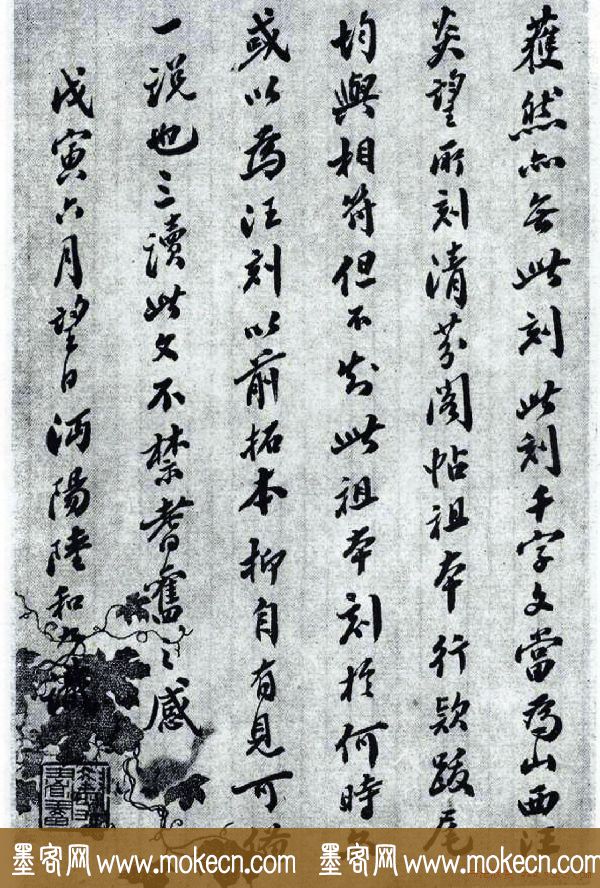 蕐然亦無此刻此刻千字文當為山西汪
炎望所刻清芬閣帖祖本行款跋尾
均與相符但不知此祖本刻於何時
或以為汪刻以前拓本抑自有見可
一說也三讀此文不禁耆奮〻感
戊寅六月望日沔陽陸和九
墨客网 www.mokecn.com 墨客网 www.mokecn.com